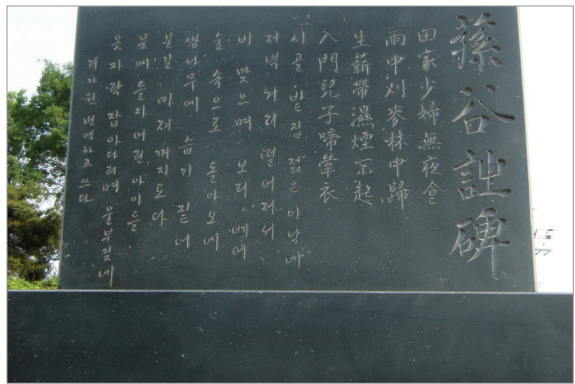 蓀谷詩碑
田家少婦無夜食
雨中刈麥林中歸
生薪帶濕煙不起
入門兒子啼牽衣
시골 밭집 젊은 아낙네
저녁거리 떨어져서
비 맞으며 보리 베어
숲 속으로 돌아오네
생나무에 습기 짙어
불길 마져 꺼지도다
문에 들자 어린 아이들
옷자락 잡아다리며 울부짖네
번역하고 쓰다